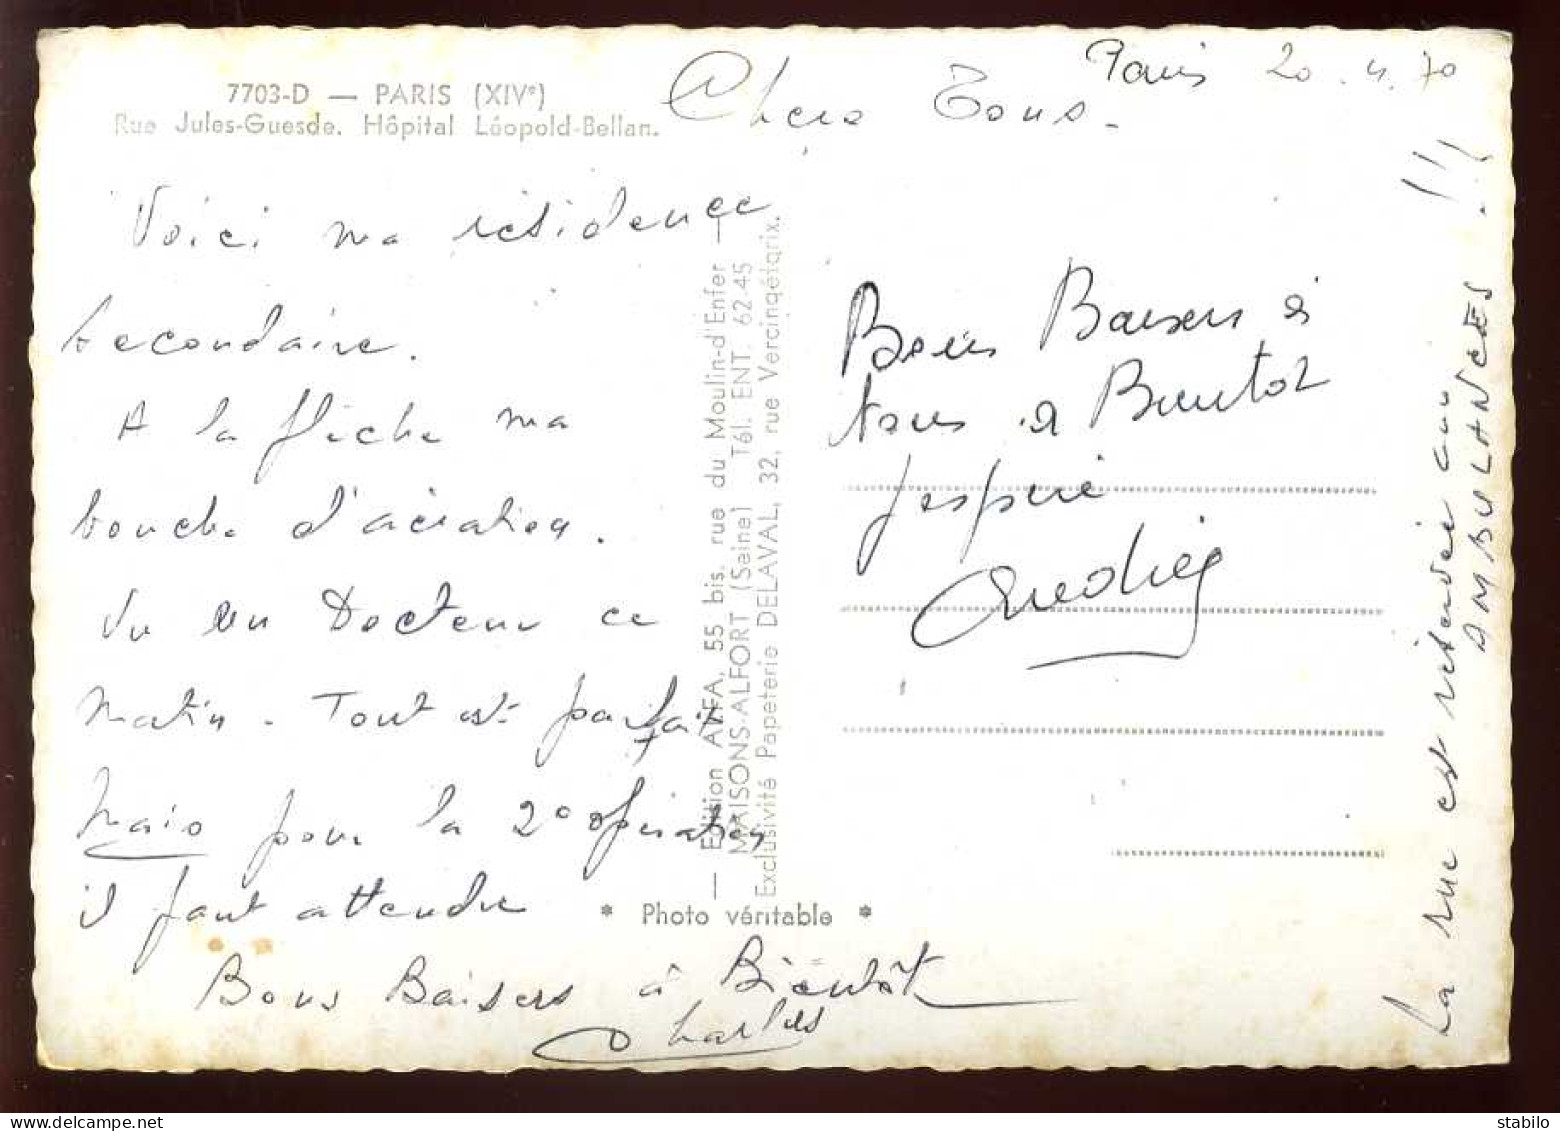 7703-D — PARIS (XIVe)
Rue Jules-Guesde. Hôpital Léopold-Bellan.
Paris 20.4.70
Chers Tous.
Voici ma résidence
secondaire.
A la flèche ma
bouche d'aération.
Vu un Docteur ce
matin. Tout est parfait
Mais pour la 2e opération
il faut attendre
Bons Baisers à Bientôt
Charles
— Edition ALFA, 55 bis. rue du Moulin-d'Enfer —
MAISONS-ALFORT (Seine) Tél. ENT. 62-45
Exclusivité Papeterie DELAVAL, 32, rue Vercingétorix.
* Photo véritable *
Bons Baisers à
tous à Bientot
j'espère
La rue est réservée aux
AMBULANCES !!!
stabilo
www.delcampe.net